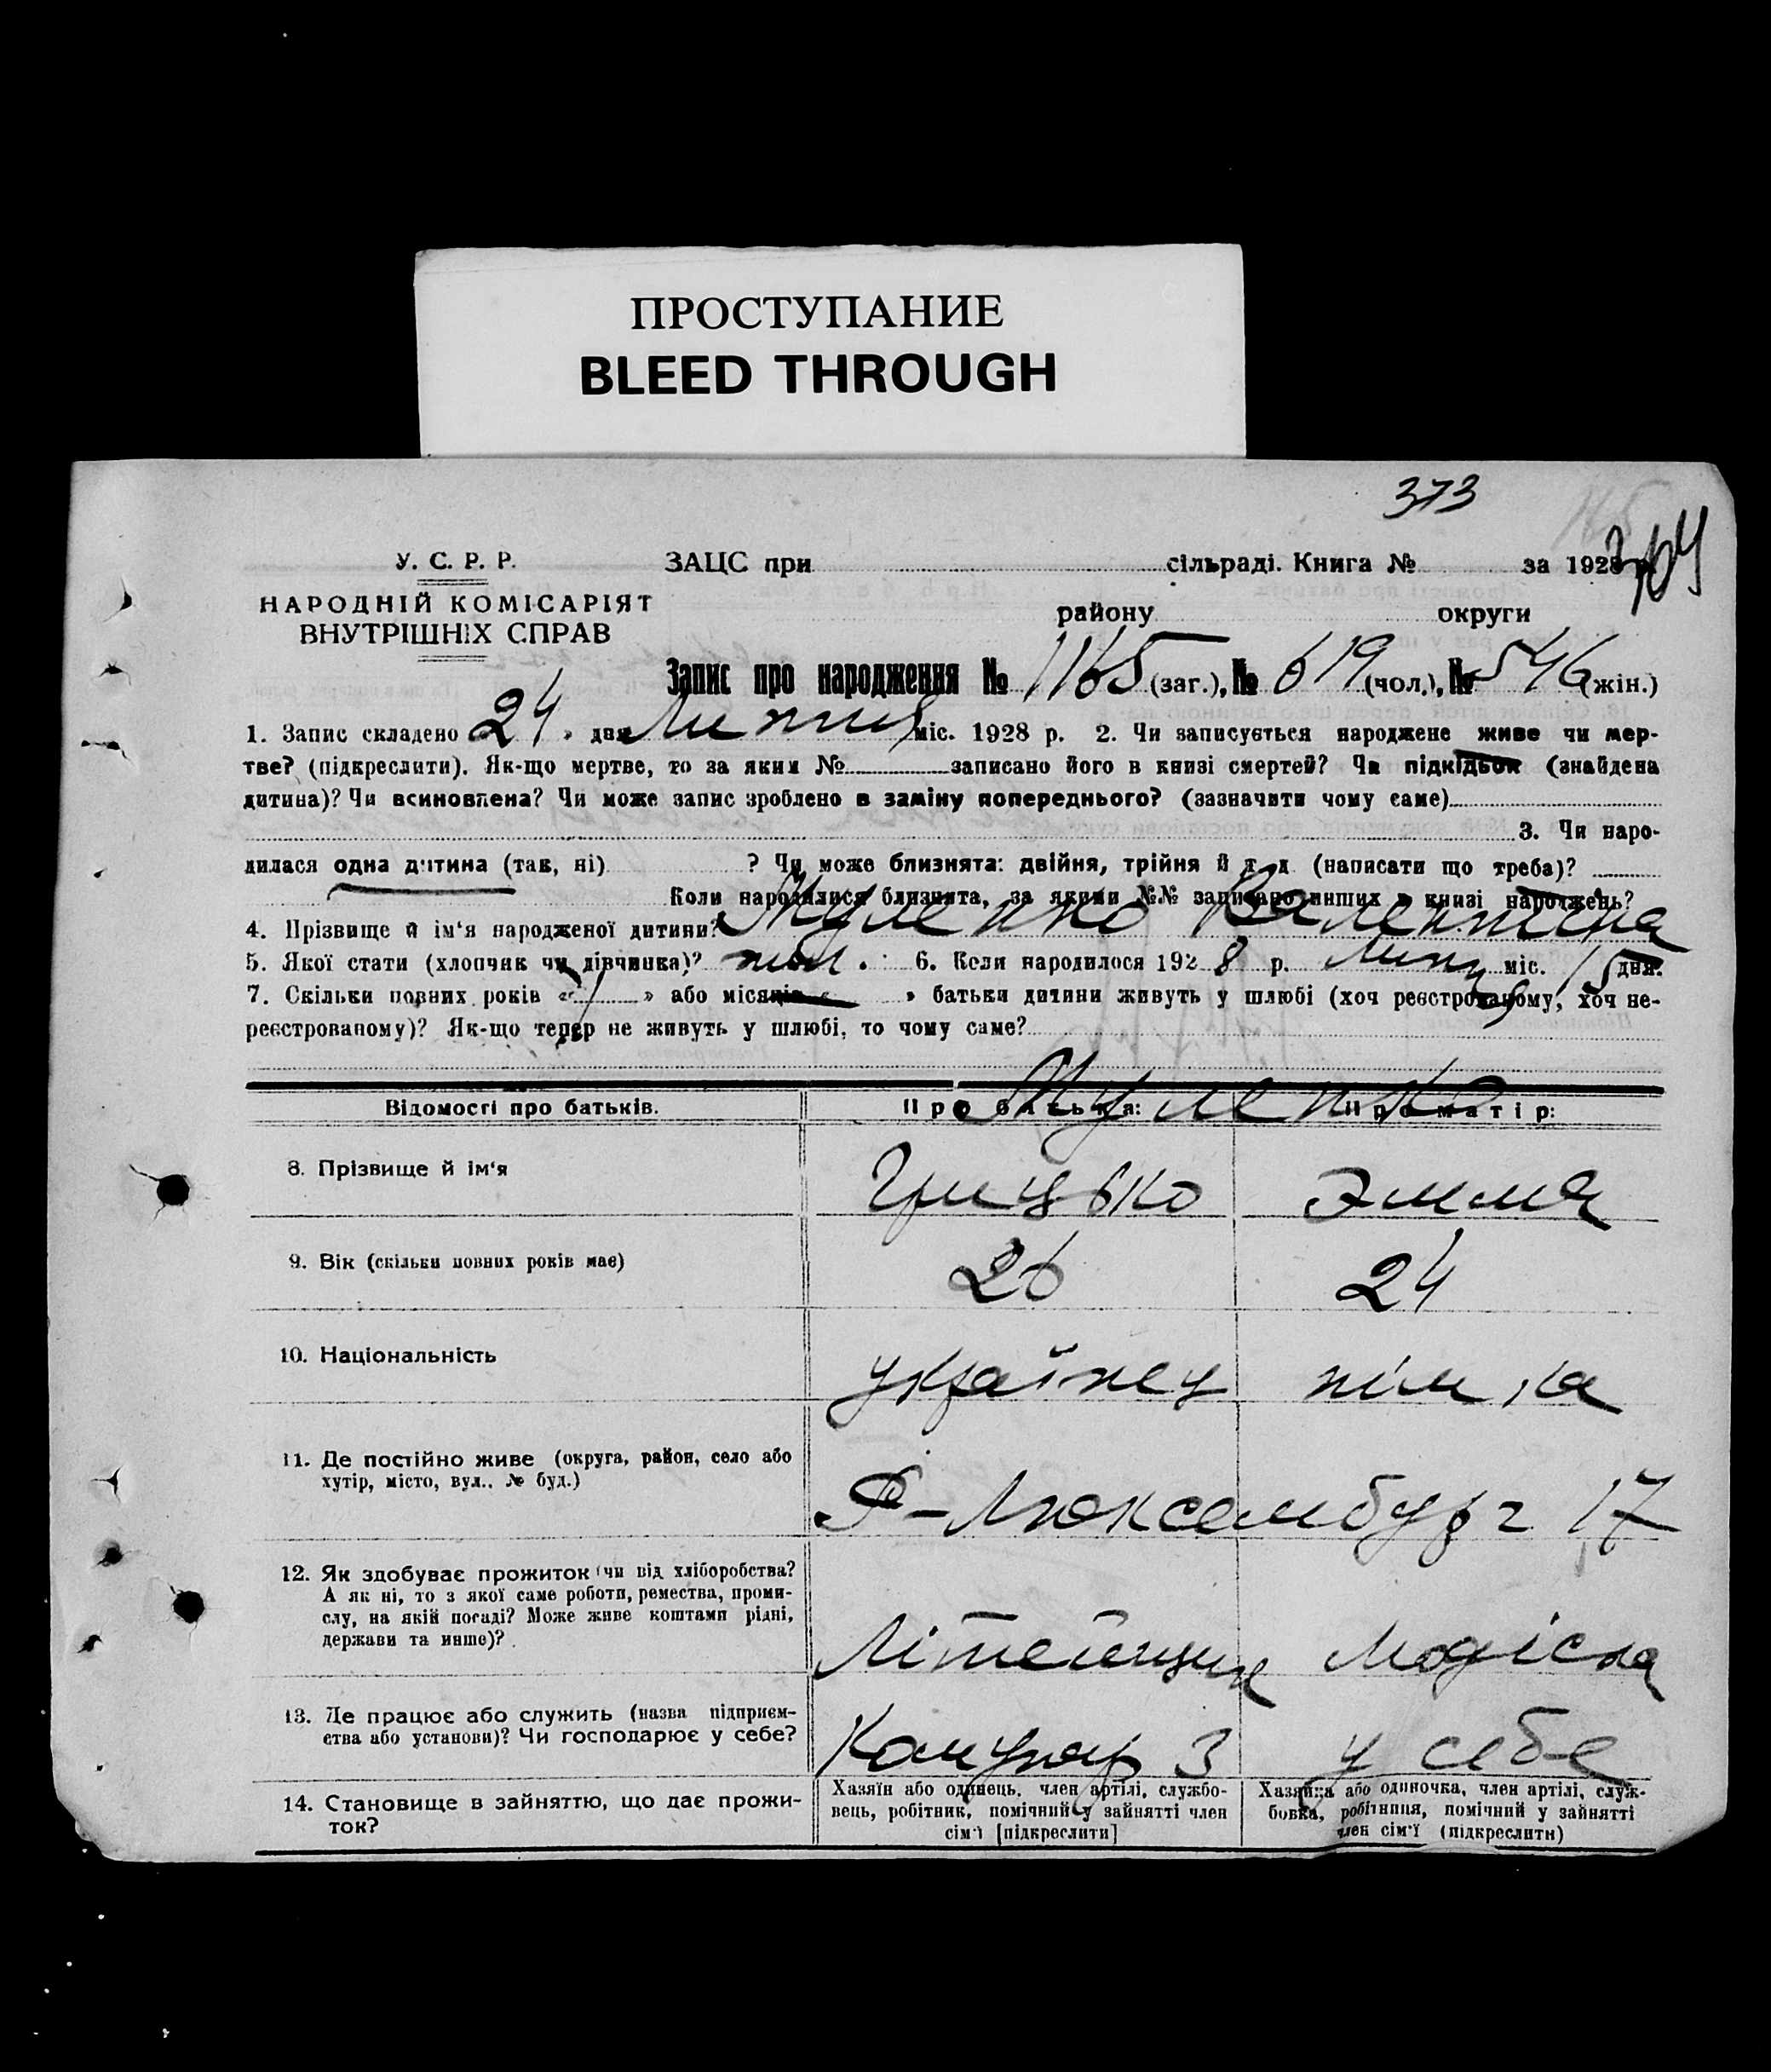 ПРОСТУПАНИЕ
BLEED THROUGH
373
У. С. Р. Р.
НАРОДНІЙ КОМІСАРІЯТ
ВНУТРІШНІХ СПРАВ
ЗАЦС при сільраді. Книга № за 1928
району округи
Запис про народження № 1165 (заг.), № 619 (чол.), № 546 (жін.)
1. Запис складено 24 дня Липня міс. 1928 р. 2. Чи записується народжене живе чи мер-
тве? (підкреслити). Як-що мертве, то за яким № записано його в книзі смертей? Чи підкідьок (знайдена
дитина)? Чи всиновлена? Чи може запис зроблено в заміну попереднього? (зазначити чому саме)
3. Чи наро-
дилася одна дитина (так, ні) ? Чи може близнята: двійня, трійня й т. д. (написати що треба)?
Коли народилися близнята, за якими №№ записано инших в книзі народжень?
4. Прізвище й ім'я народженої дитини? Валентина
5. Якої стати (хлопчик чи дівчинка)? 6. Коли народилося 1928 р. Липня міс. 15 дня.
7. Скільки повних років « 1 » або місяців « » батьки дитини живуть у шлюбі (хоч реєстрованому, хоч не-
реєстрованому)? Як-що тепер не живуть у шлюбі, то чому саме?
Відомості про батьків. Про батька: Про матір:
8. Прізвище й ім'я Грицько Эмма
9. Вік (скільки повних років має) 26 24
10. Національність українец німка
11. Де постійно живе (округа, район, село або
хутір, місто, вул., № буд.)
Р-Люксембург 17
12. Як здобуває прожиток (чи від хліборобства?
А як ні, то з якої саме роботи, ремества, проми-
слу, на якій посаді? Може живе коштами рідні,
держави та инше)?
Літейщик Модістка
13. Де працює або служить (назва підприєм-
ства або установи)? Чи господарює у себе?
Комунар З у себе
14. Становище в зайняттю, що дає прожи-
ток?
Хазяїн або одинець, член артілі, службо-
вець, робітник, помічний у зайнятті член
сім'ї [підкреслити]
Хазяйка або одиночка, член артілі, служ-
бовка, робітниця, помічний у зайнятті
член сім'ї (підкреслити)